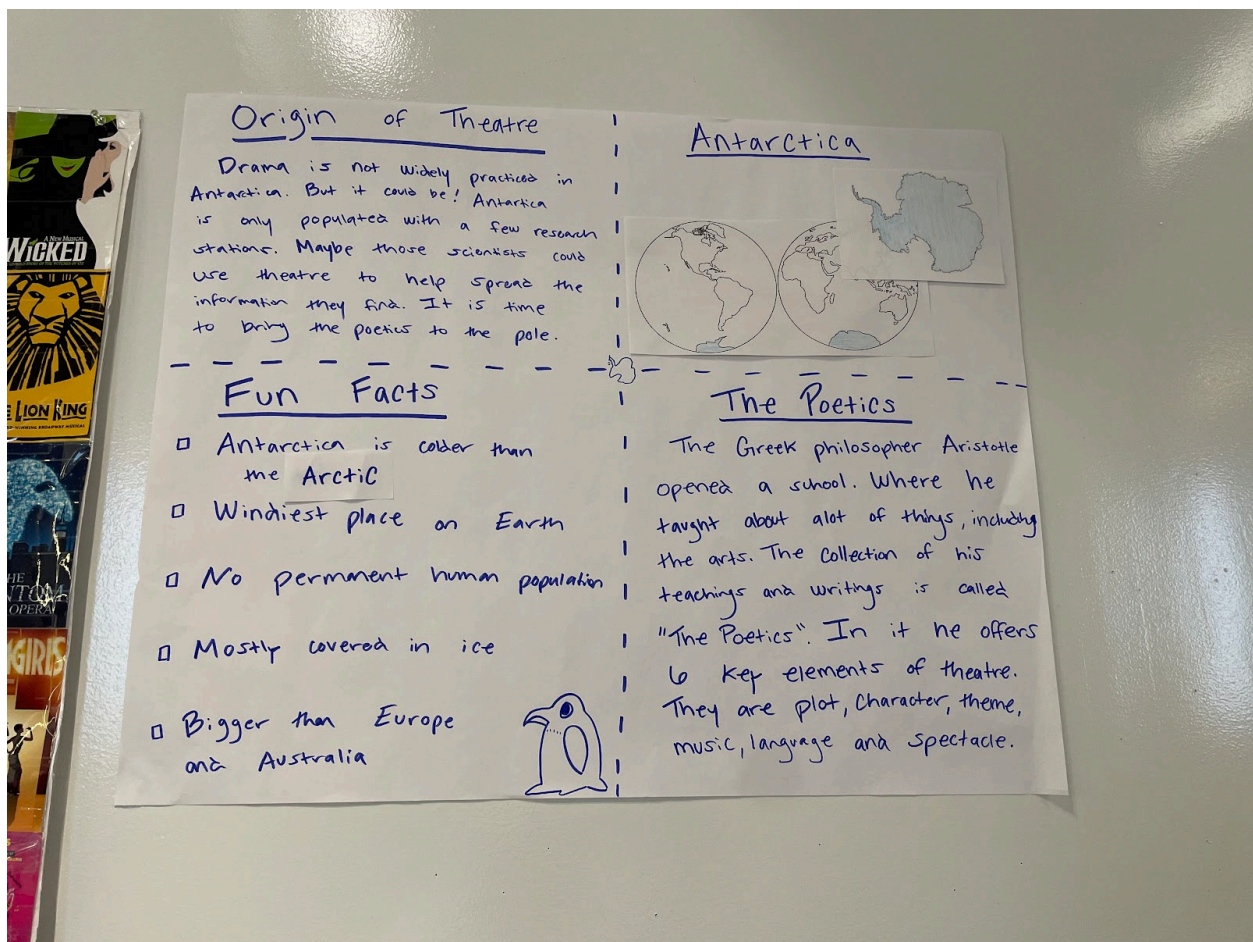 Origin of Theatre
Drama is not widely practiced in
Antarctica. But it could be! Antartica
is only populated with a few research
stations. Maybe those scientists could
use theatre to help spread the
information they find. It is time
to bring the poetics to the pole.
Antarctica
Fun Facts
Antarctica is colder than
the Arctic
Windiest place on Earth
No permanent human population
Mostly covered in ice
Bigger than Europe
and Australia
The Poetics
The Greek philosopher Aristotle
opened a school. Where he
taught about alot of things, including
the arts. The collection of his
teachings and writings is called
"The Poetics". In it he offers
6 key elements of theatre.
They are plot, Character, theme,
music, language and spectacle.
A NEW MUSICAL
WICKED
LION KING